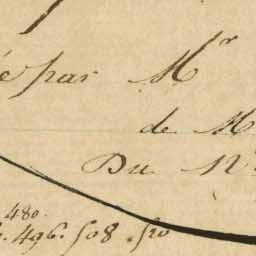 é par Mr
de M
Du N
480.
496. 508. 520